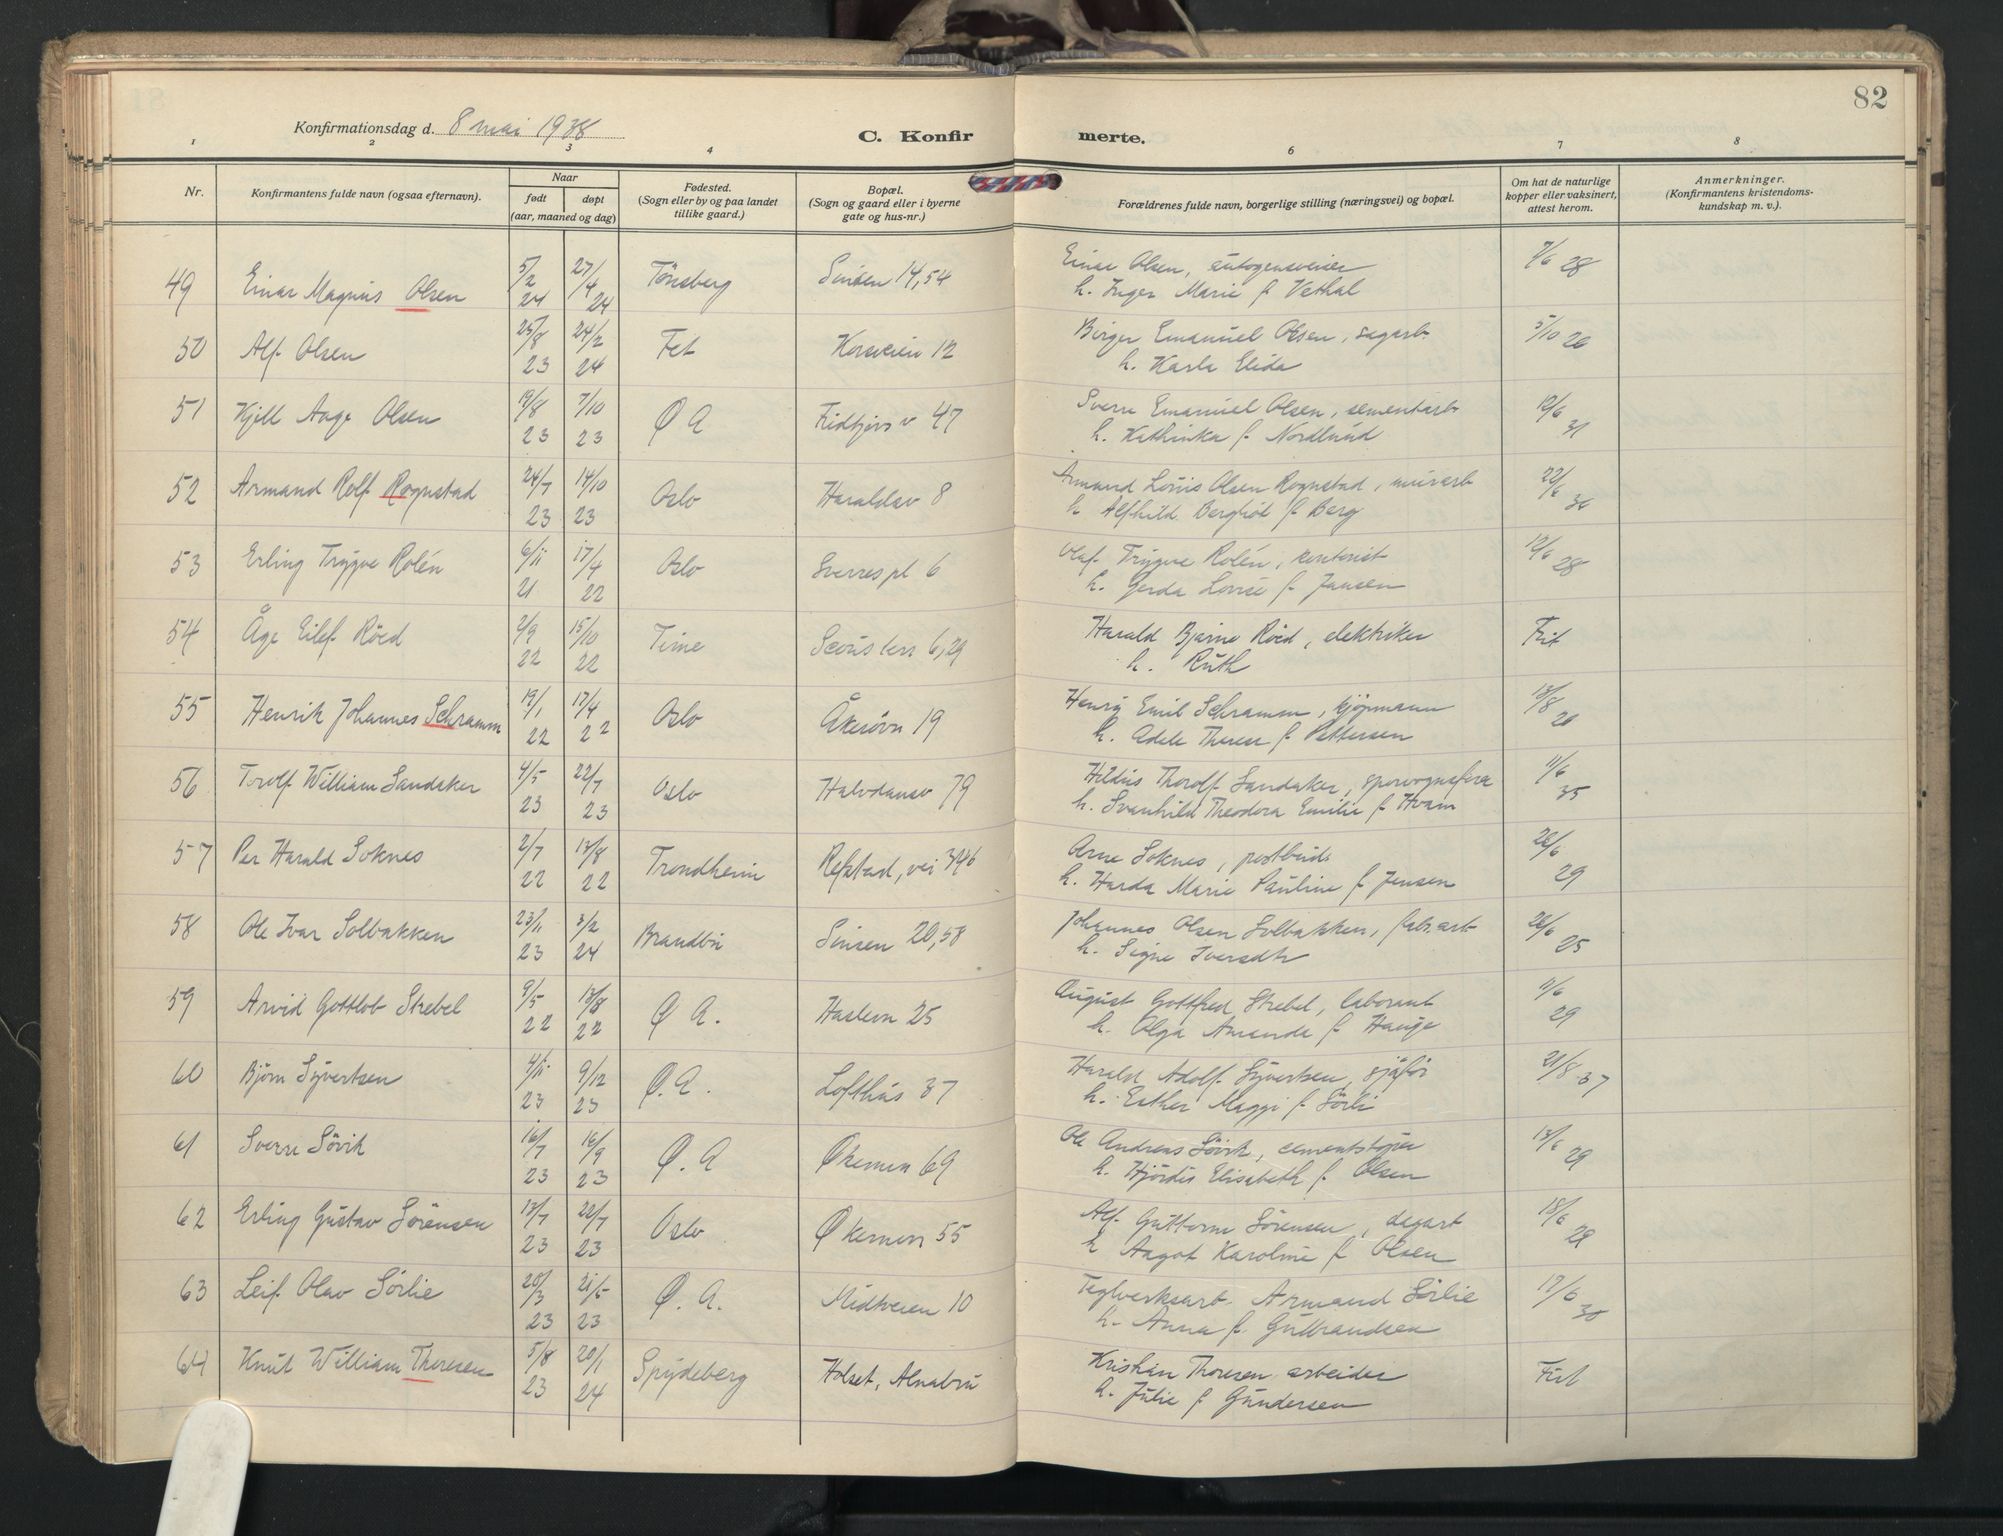 82
Konfirmationsdag d. 8 mai 1938
C. Konfir merte.
1 2 3 4 6 7 8
Nr.
Konfirmantens fulde navn (ogsaa efternavn).
Naar
født døpt
(aar, maaned og dag)
Fødested.
(Sogn eller by og paa landet
tillike gaard.)
Bopæl.
(Sogn og gaard eller i byerne
gate og hus-nr.)
Forældrenes fulde navn, borgerlige stilling (næringsvei) og bopæl.
Om hat de naturlige
kopper eller vaksinert,
attest herom.
Anmerkninger.
(Konfirmantens kristendoms-
kundskap m. v.).
49 Einar Magnus Olsen 5/2 24 27/4 24 Tönsberg Sinsen 14,54 Einar Olsen, autogensveiser 7/6 28
h. Inger Marie f. Vethal
50 Alf Olsen 25/8 23 24/2 24 Fet Korsveien 12 Birger Emanuel Olsen, sagarb. 5/10 26
h. Karla Elida
51 Kjell Aage Olsen 19/8 23 7/10 23 Ø A Fridtjovs v 47 Sverre Emanuel Olsen, sementarb 12/6 31
h. Kathinka f. Nordlund
52 Armand Rolf Rognstad 24/7 23 14/10 23 Oslo Haraldsv 8 Armand Louis Olsen Rognstad, murarb 22/6
h Alfhild Bergliot f Berg
53 Erling Trygve Rolén 6/11 21 17/4 22 Oslo Sverres pl 6 Olaf Trygve Rolén, kontorist 12/6 28
h. Gerda Lovise f Jansen
54 Åge Eilef Röed 2/9 22 15/10 22 Time 6,29 Harald Bjarne Röed, elektriker Frit
h. Ruth
55 Henrik Johannes Schramm 19/1 22 17/4 22 Oslo Åkersvn 19 Henry Emil Schramm, kjøpmann 13/8 26
h. Adele Therese f Pettersen
56 Torolf William Sandaker 4/5 23 22/7 23 Oslo Halvdansv 79 Hildus Thorolf Sandaker, sporvognsfører 11/6 35
h. Svanhild Theodora Emilie f Hvam
57 Per Harald Soknes 2/7 22 13/8 22 Trondheim Refstad, vei 396 Arne Soknes, postbud 26/6 29
h. Harda Marie Pauline f Jensen
58 Ole Ivar Solbakken 23/11 23 3/2 24 Brandbu Sinsen 20,58 Johannes Olsen Solbakken, fabr.arb 26/6 25
h. Signe Iversdtr
59 Arvid Gottlob Strebel 9/5 22 13/8 22 Ø A. Haslevn 25 August Gottfred Strebel, laborant 11/6 29
h. Olga Amanda f. Hauge
60 Bjørn Syvertsen 4/11 23 9/12 23 Ø. A. Lofthus 37 Harald Adolf Syvertsen, sjåför 21/8 37
h. Esther Maggi f Sörli
61 Sverre Sövik 16/7 23 16/9 23 Ø. A Økernvn 69 Ole Andreas Sövik, cementstøper 13/6 29
h. Hjördis Elisabeth f. Olsen
62 Erling Gustav Sörensen 13/7 23 22/7 23 Oslo Økernvn 55 Alf Guttorm Sörensen, 18/6 29
h Aagot Karoline f Olsen
63 Leif Olav Sörlie 20/3 23 21/5 23 Ø. A. Midtveien 10 Teglverksarb. Armand Sörlie 17/6
h. Anna f. Gulbrandsen
64 Knut William Thoresen 5/8 23 20/1 24 Spydeberg Holset, Alnabru Kristian Thoresen arbeider Frit
h. Julie f Gundersen